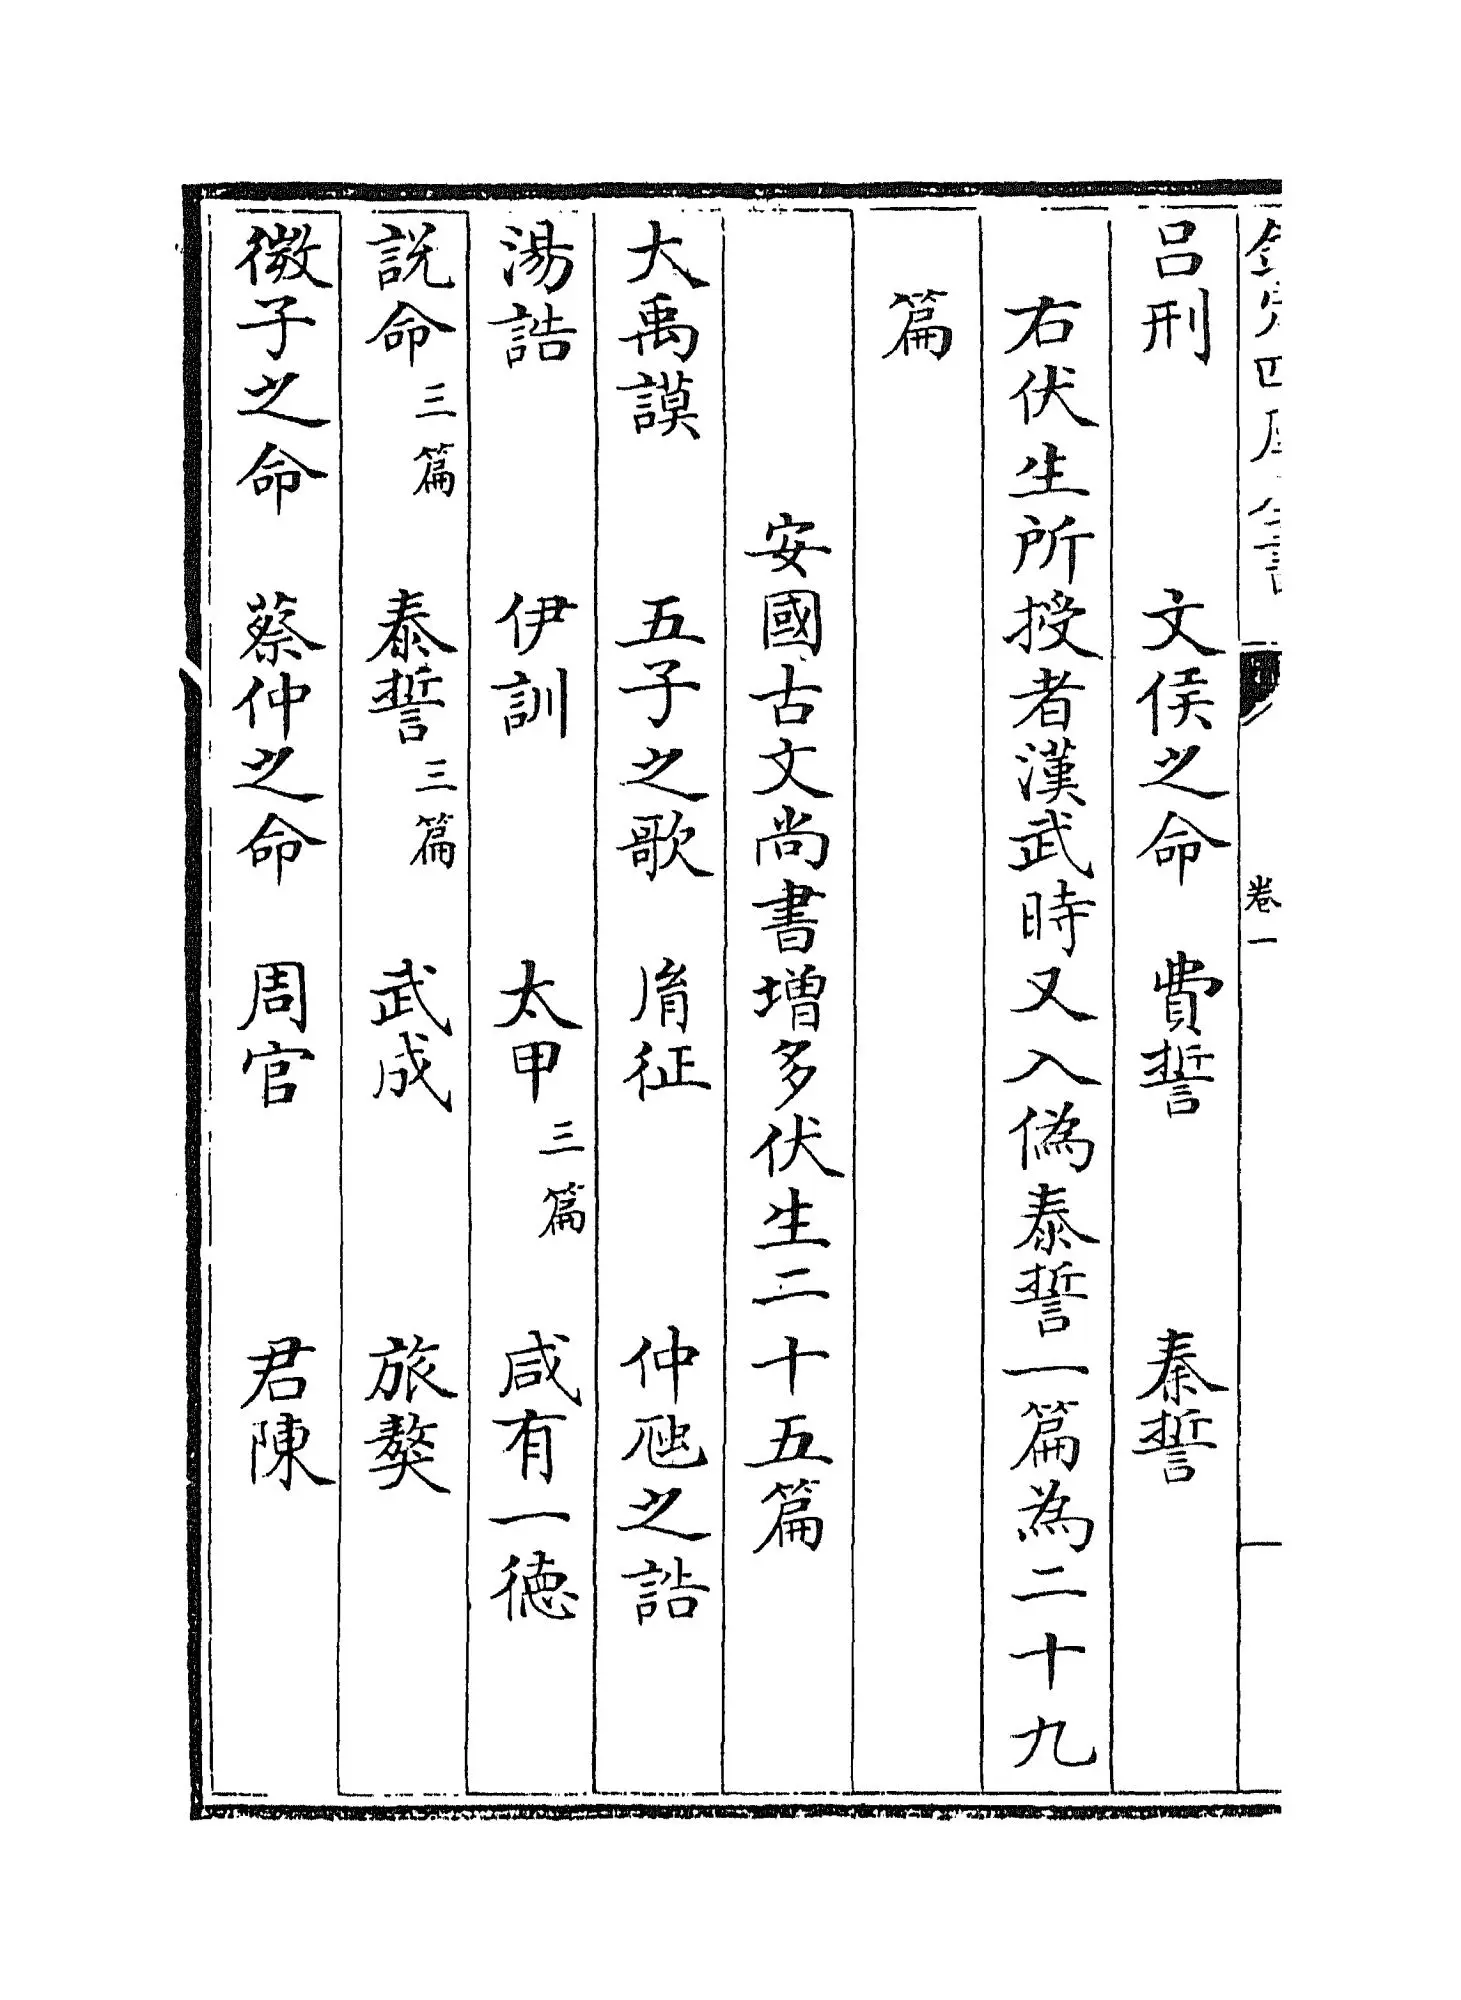 欽定四庫全書
卷一
呂刑 文侯之命 費誓 秦誓
右伏生所授者漢武時又入偽泰誓一篇為二十九
篇
安國古文尚書增多伏生二十五篇
大禹謨 五子之歌 胤征 仲虺之誥
湯誥 伊訓 太甲三篇 咸有一德
說命三篇 泰誓三篇 武成 旅獒
微子之命 蔡仲之命 周官 君陳